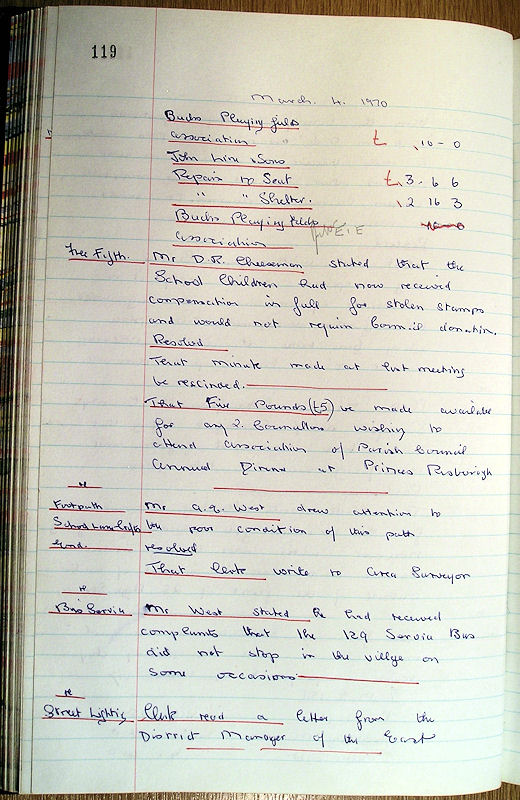 119
March. 4. 1970
Bucks Playing fields
association " £ 10-0
John Line & Sons
Repairs to Seat £ 3. 6 6
" " Shelter. 2 16 3
Bucks Playing Fields
association
Free Fifth. Mr D.R. Cheeseman stated that the
School Children had now received
compensation in full for stolen stamps
and would not require Council donation.
Resolved
That minute made at last meeting
be rescinded.
That Five Pounds (£5) be made available
for any 2 Councillors wishing to
attend association of Parish Council
Annual Dinner at Princes Risborough
re
Footpath Mr A.G. West drew attention to
School Lane the poor condition of this path
End. resolved
That Clerk write to Area Surveyor
re
Bus Service Mr West stated he had received
complaints that the 129 Service Bus
did not stop in the village on
some occasions
re
Street Lighting Clerk read a letter from the
District Manager of the East